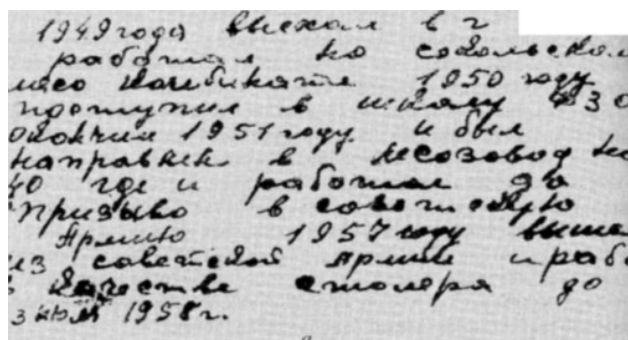 1949 года выехал в г
работал на собольском
мясо комбинате 1950 году
поступил в школу ФЗО
окончил 1951 году и был
направлен в лесозавод но
40 где и работал до
призыво в советскую
Армию 1957 году выше
из советской армии и рабо
в качестве столяра до
1958 г.